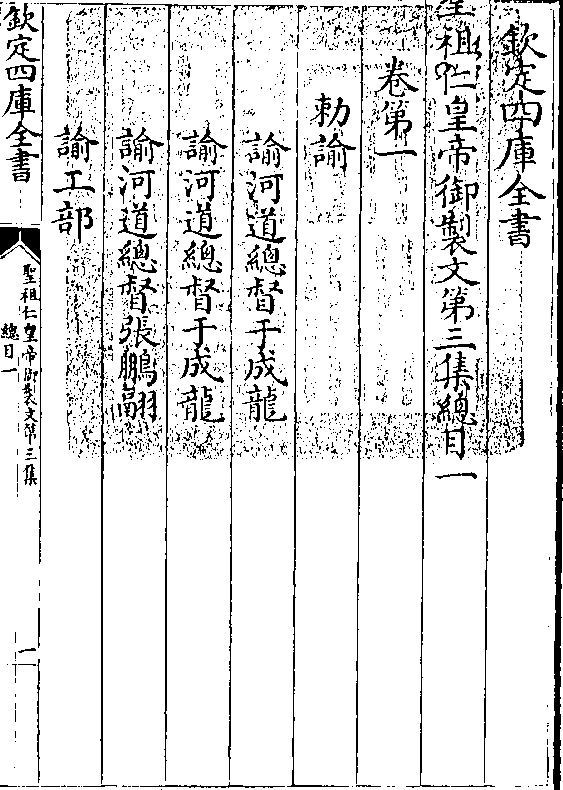 欽定四庫全書
聖祖仁皇帝御製文第三集總目一
卷第一
勅諭
諭河道總督于成龍
諭河道總督于成龍
諭河道總督張鵬翮
諭工部
欽定四庫全書
聖祖仁皇帝御製文第三集
總目一
一